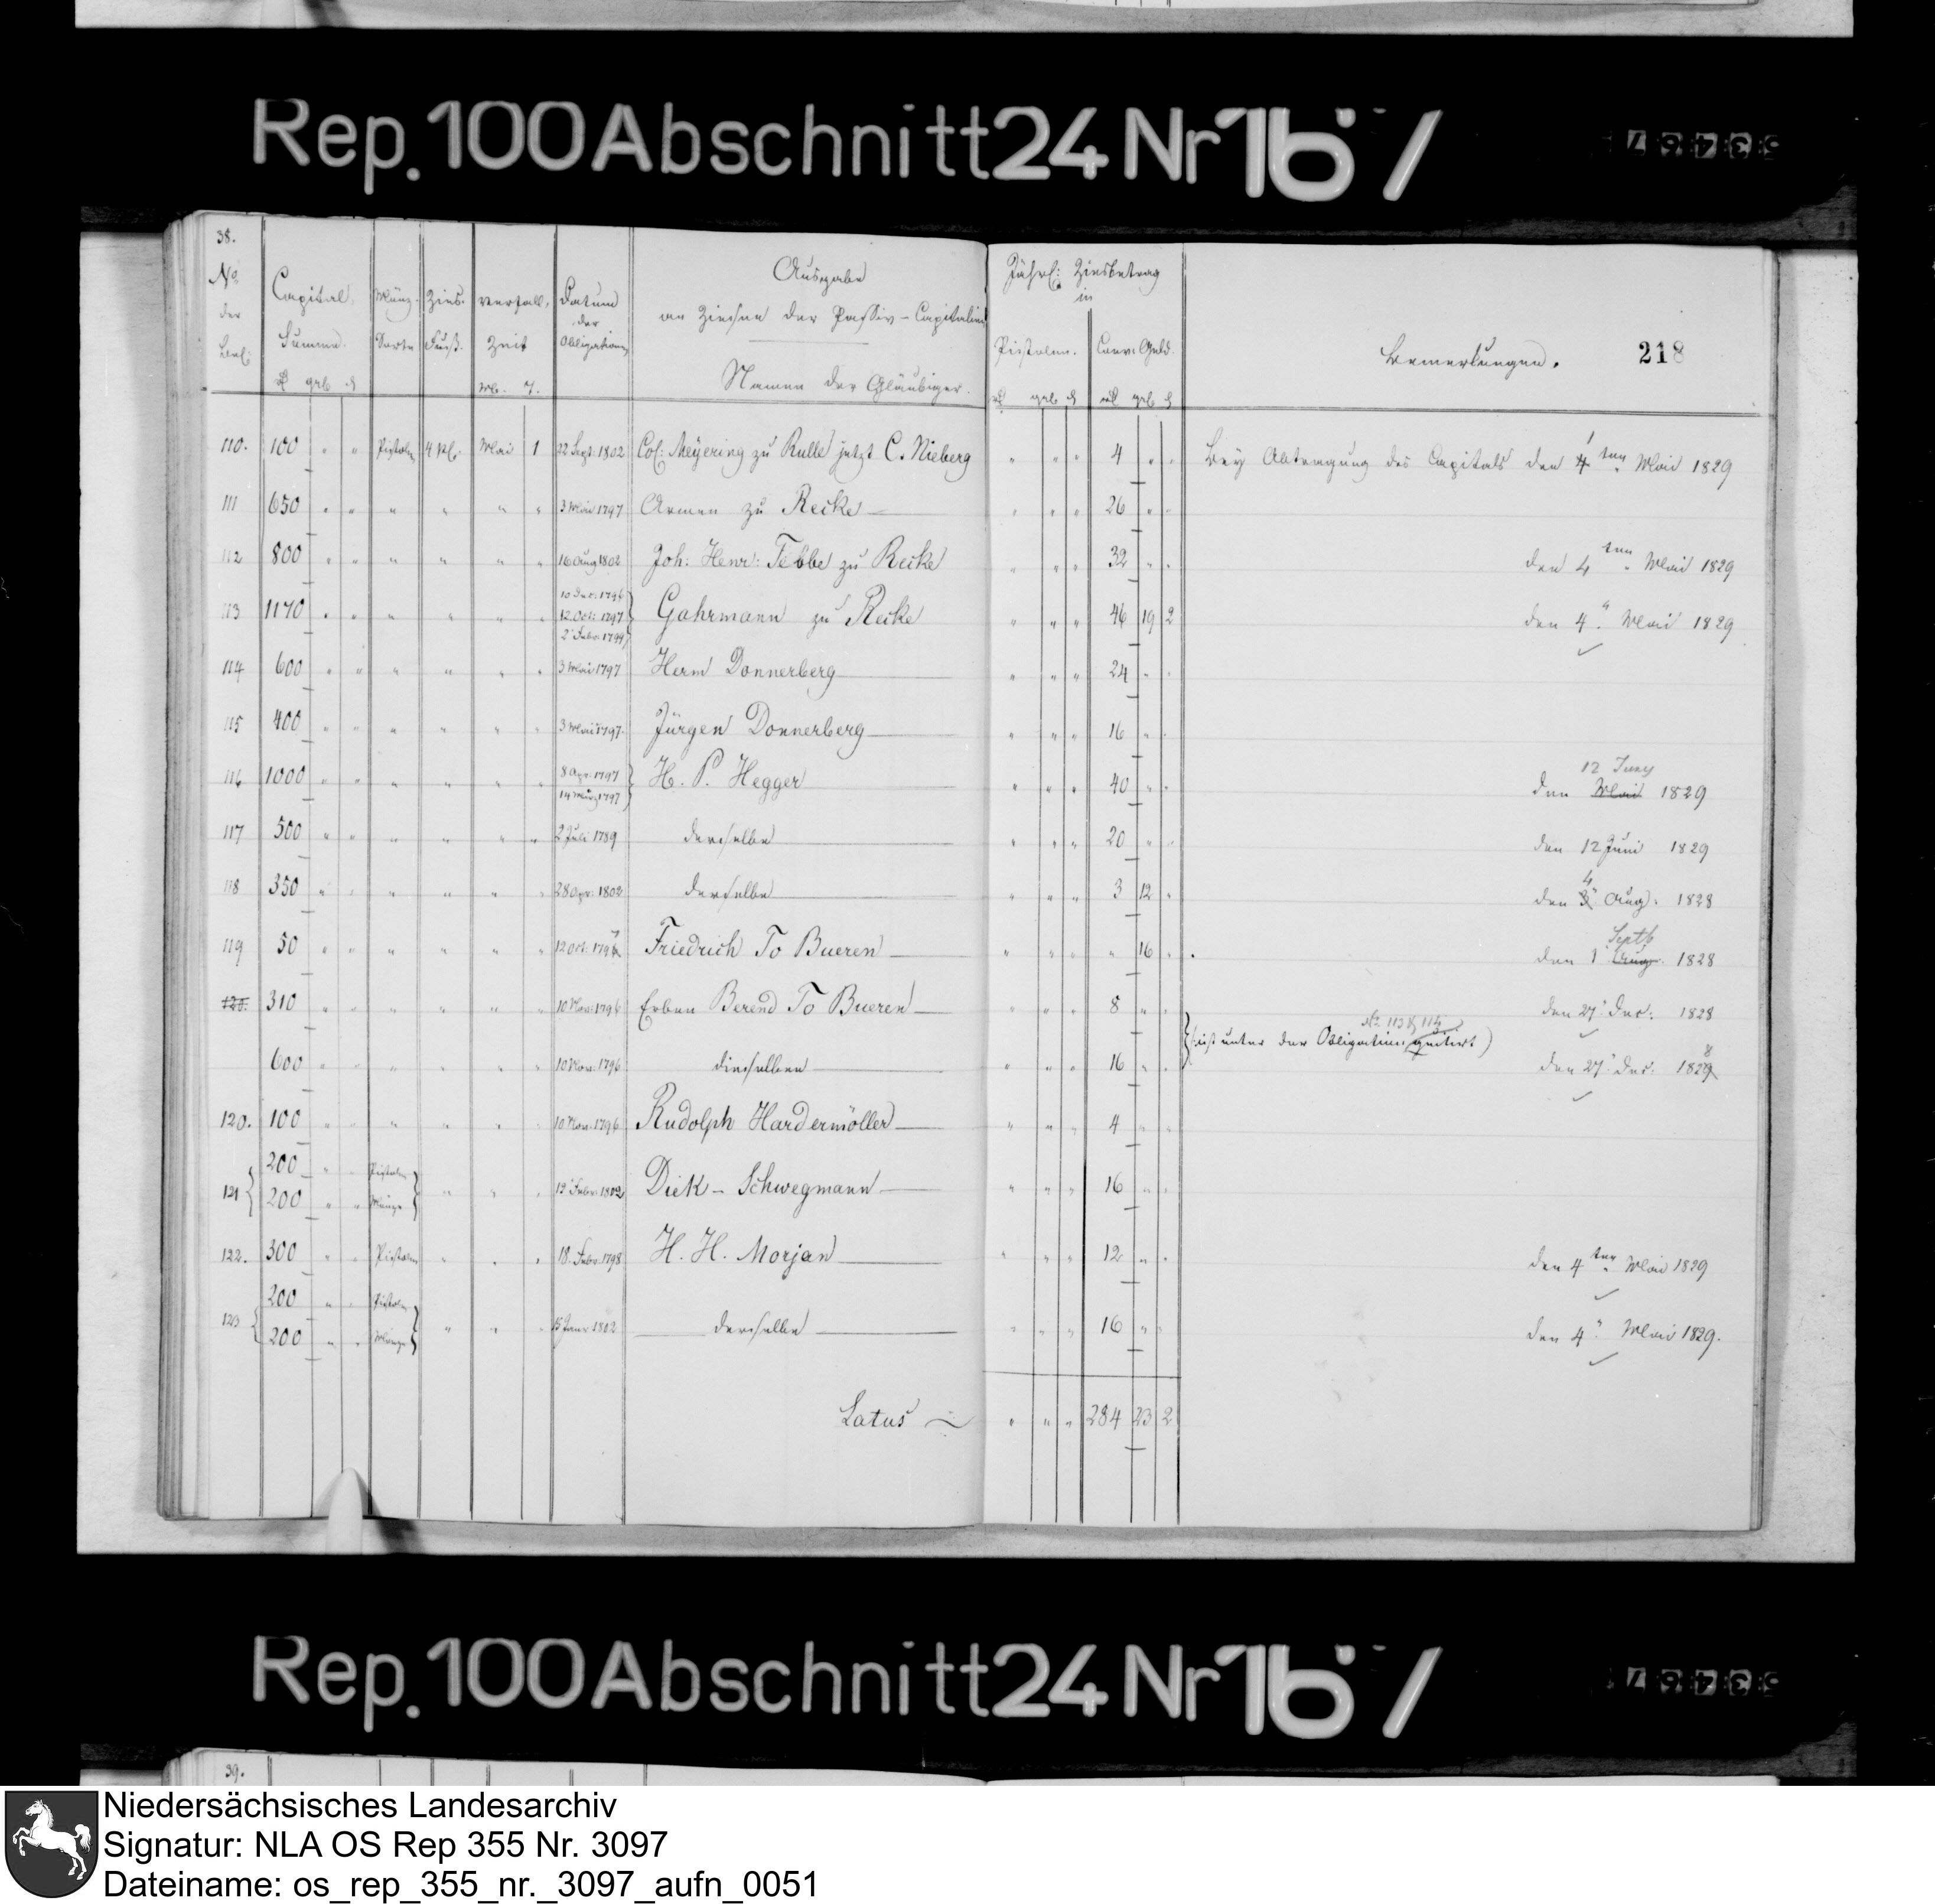 Rep.100 Abschnitt 24 Nr 167
38.
218
No der Bel:
Capital Summe.
Münz-Sorte
Zins-Fuß.
Verfall-Zeit
M. T.
Datum der Obligation
Ausgabe
an Zinsen der Passiv-Capitalien
Namen der Gläubiger.
Jährl: Zinsbetrag
in
Pistolen. Conv: Geld.
Bemerkungen.
110. 100 " " Pistolen 4 Pct. Mai 1 22 Sept: 1802 Col: Meÿering zu Rulle jetzt C. Nieberg " " " 4 " " Bey Abtragung des Capitals den 4ten Mai 1829
111 650 " " " " " " 3 Mai 1797 Armen zu Recke " " " 26 " "
112 800 " " " " " " 16 Aug 1802 Joh: Henr: Tebbe zu Recke " " " 32 " " den 4ten Mai 1829
113 1170 " " " " " " 10 Dec: 1796 12 Oct: 1797 2 Febr: 1799 Gahrmann zu Recke " " " 46 19 2 den 4" Mai 1829
114 600 " " " " " " 3 Mai 1797 Herm Donnerberg " " " 24 " "
115 400 " " " " " " 3 Mai 1797 Jürgen Donnerberg " " " 16 " "
116 1000 " " " " " " 8 Apr: 1797 14 März 1797 H. P. Hegger " " " 40 " " den 12 Juny Mai 1829
117 500 " " " " " " 2 Juli 1789 derselbe " " " 20 " " den 12 Juni 1829
118 350 " " " " " " 28 Apr: 1802 derselbe " " " 3 12 " den 4 Aug: 1828
119 50 " " " " " " 12 Oct: 1797 Friedrich To Bueren " " " " 16 " den 1 Septb Aug. 1828
120. 310 " " " " " " 10 Nov: 1796 Erben Berend To Bueren " " " 8 " " den 27" Dec: 1828
No 113 & 114
(ist unter der Obligation quitirt)
600 " " " " " " 10 Nov: 1796 dieselben " " " 16 " " den 27" Dec: 1828
120. 100 " " " " " " 10 Nov: 1796 Rudolph Hardermöller " " " 4 " "
121 200 " " Pistolen 200 " " Münze " " " 19 Febr: 1802 Diek-Schwegmann " " " 16 " "
122. 300 " " Pistolen " " " 18. Febr: 1798 H. H. Morjan " " " 12 " " den 4ten Mai 1829
123 200 " " Pistolen 200 " " Münze " " " 15 Janr 1802 derselbe " " " 16 " " den 4" Mai 1829.
Latus " " " 284 23 2
Rep.100 Abschnitt 24 Nr 167
39.
Niedersächsisches Landesarchiv
Signatur: NLA OS Rep 355 Nr. 3097
Dateiname: os_rep_355_nr._3097_aufn_0051